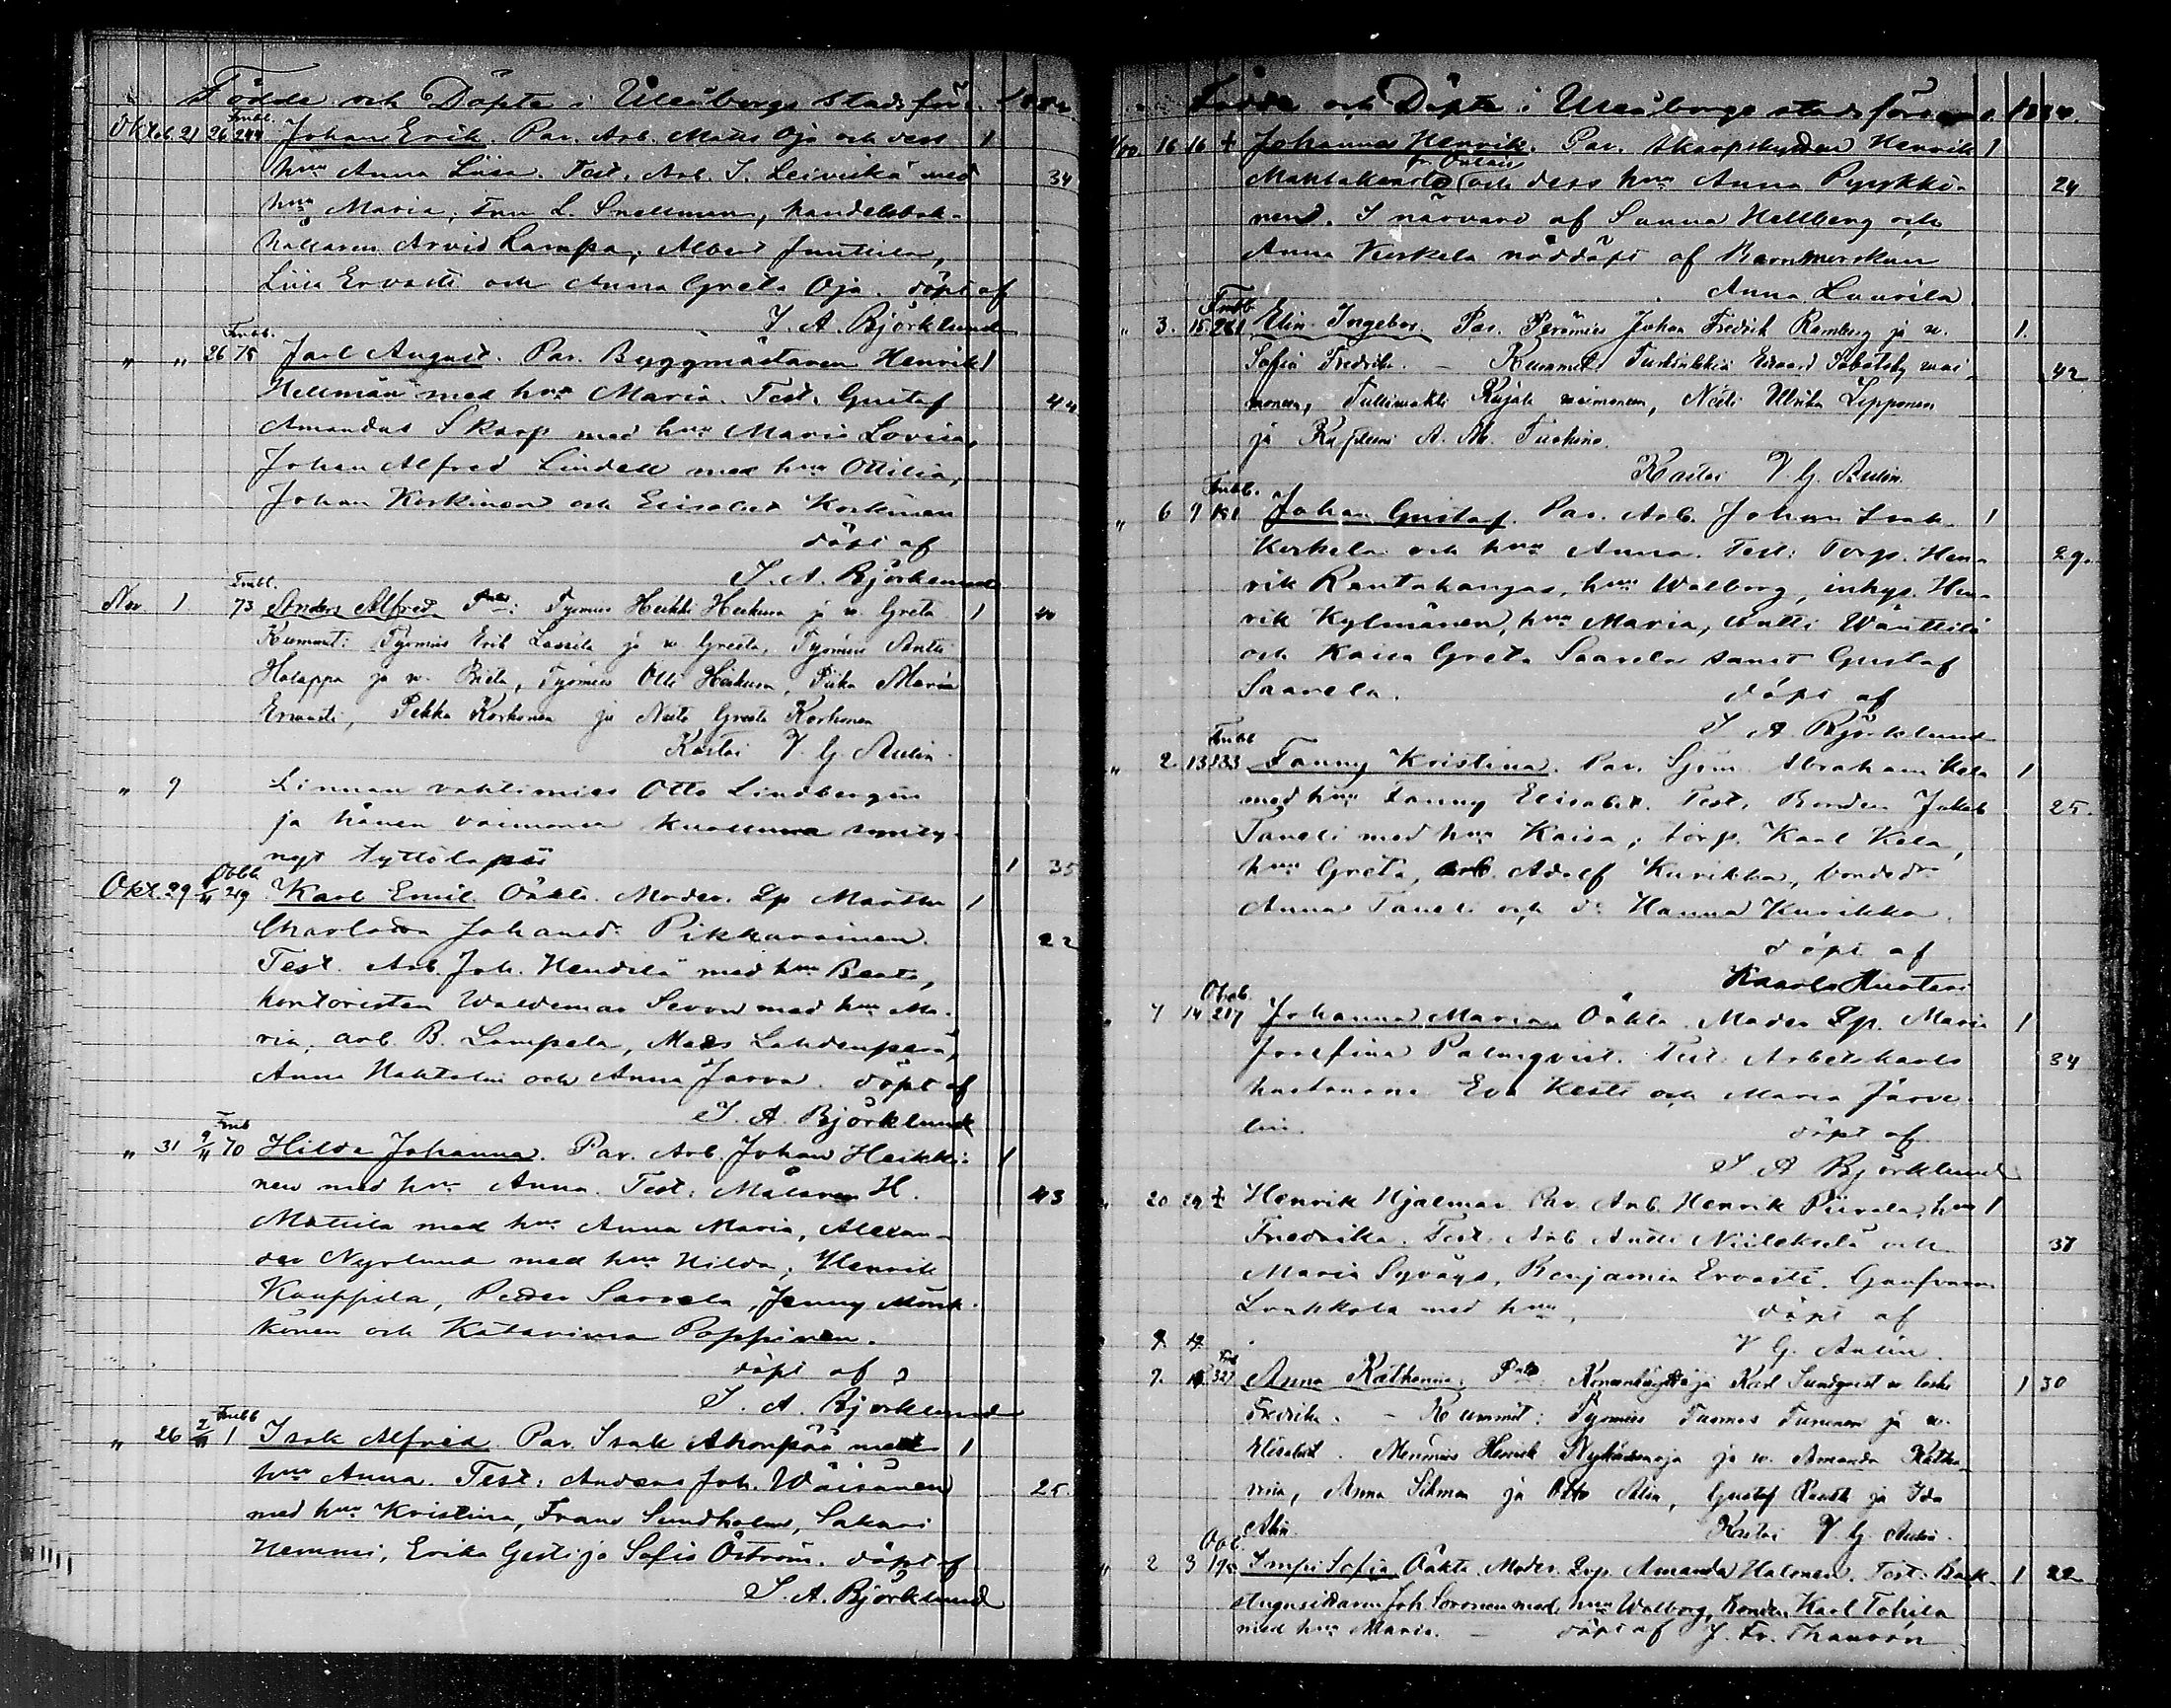 Födde och Döpte i Uleåborgs stadsför. 1884.
Oktob. 21 26 Frubl. 244 Johan Erik. Par. Arb. Matts Oja och dess 1
hru Anna Liisa. Test. Arb. J. Leiviskä med 34
hru Maria, Fru L. Snellman, handelsbok-
hållaren Arvid Lampa, Albert Junttila,
Liisa Ervasti och Anna Greta Oja. döpt af
J. A. Björklund
" " 26 Frubb. 75 Jarl August. Par. Byggmästaren Henrik 1
Hellman med hru Maria. Test. Gustaf 44
Amandus Skarp med hru Maria Lovisa,
Johan Alfred Lindell med hru Ottilia,
Johan Korkinen och Elisabet Korkinen
döpt af
J. A. Björklund
Nov 1 Frubl. 73 Anders Alfred. Työmies Heikki Heikura ja v. Greta 1 40
Kummit: Työmies Erik Lassila ja v. Greeta, Työmies Antti
Halappa ja v. Brita, Työmies Olli Heikura, Piika Maria
Ervasti, Pekka Korhonen ja Neito Greeta Korhonen
Kastoi V. G. Aulin.
" 9 Linnan vahtimies Otto Lindbergin
ja hänen vaimonsa kuolluna synty-
nyt tyttölapsi 1 35
Okt. 29 9/11 Obbl. 219 Karl Emil. Oäkta. Moder. Lp Martha 1
Charlotta Johansdr Pikkarainen. 22
Test. Arb. Joh. Hendelä med hru Beata,
kontoristen Waldemar Sevon med hru Ma-
ria, arb. B. Lampela, Mats Lahdenperä,
Anna Hahtolin och Anna Jarva. döpt af
J. A. Björklund
" 31 9/11 Frub 70 Hilda Johanna. Par. Arb. Johan Heikki- 1
nen med hru Anna. Test. Målaren H. 43
Mattila med hru Anna Maria, Alexan-
der Nyrlund med hru Hilda, Henrik
Kauppila, Peder Saarela, Jenny Mönk-
könen och Katarina Poppinen.
döpt af
J. A. Björklund
" 26 2/11 Frubb 1 Isak Alfred. Par. Isak Ahonpää med 1
hru Anna. Test: Anders Joh. Wäisänen 25.
med hru Kristina, Frans Sundholm, Sakari
Hemmi, Erika Gestijo Sofia Öström. döpt af
J. A. Björklund
Födde och Döpte i Uleåborgs stadsförs. 1884.
16 16 + Johannes Henrik. Par. Skarpskytten Henrik 1
och dess hru Anna Pyykkö- 24
nen. I närvaro af Sanna Hellberg och
Anna Keskela nöddöpt af Barnmorskan
Anna Laurila
" 3. 15 Frubb 281 Elin Ingebor. Par. Perämies Johan Fredrik Ramberg ja v. 1.
Sofia Fredrika. - Kummit: Edvard vai- 42
monsa, Tullivahti Kujala vaimonsa, Neiti Ulrika Lipponen
ja Kapteeni A. M. Tuohino.
Kastoi V. G. Aulin.
" 6 9 Frubb. 181 Johan Gustaf. Par. Arb. Johan Isak 1
Keskela och hru Anna. Test: Torp. Hen- 29.
rik Rantakangas, hru Walborg, inhys. Hen-
rik Kylmänen, hru Maria, Antti Wänttilä
och Kaisa Greta Saarela samt Gustaf
Saarela. döpt af
J A Björklund
" 2. 13 Frubl 133 Fanny Kristina. Par. Sjöm. Abraham Kela 1
med hru Fanny Elisabet. Test. Bonden Jakob 25.
Taneli med hru Kaisa, torp. Karl Kela,
hru Greta, arb. Adolf Kurikka, bondedr
Anna Taneli och dr Hanna Kurikka.
döpt af
Kaarlo
" 7 14 Obab. 217 Johanna Maria. Oäkta. Moder Lp. Maria 1
Josefina Palmqvist. Test. Arbetskarls 34
hustrurna Eva Kesti och Maria Järve-
lin. döpt af
J A Björklund
" 20 29 + Henrik Hjalmar. Par Arb. Henrik Piirala, hru 1
Fredrika. Test. Arb Antti Niilekselä och 37
Maria Syväys, Benjamin Ervasti. Garfvaren
Luukkola med hru. döpt af
9. 19. V G. Aulin.
7. Frb 327 Anna Katharina. Karl Sundqvist v. 1 30
Fredrika. - Kummit: Työmies Tuomas Tuminen ja v.
Elisabet. Merimies Henrik ja v. Amanda Katha-
rina, Anna Silman ja Otto Alin, Gustaf ja Ida
Alin. Kastoi V. G. Aulin.
" 2 3 Obl. 190 Impi Sofia. Oäkta. Moder. Lp. Amanda Halonen. Test: Back- 1 22
stugusittaren Joh. Soronen med hru Walborg, bonden Karl Tohila
med hru Maria. - döpt af J. Fr. Thauvón